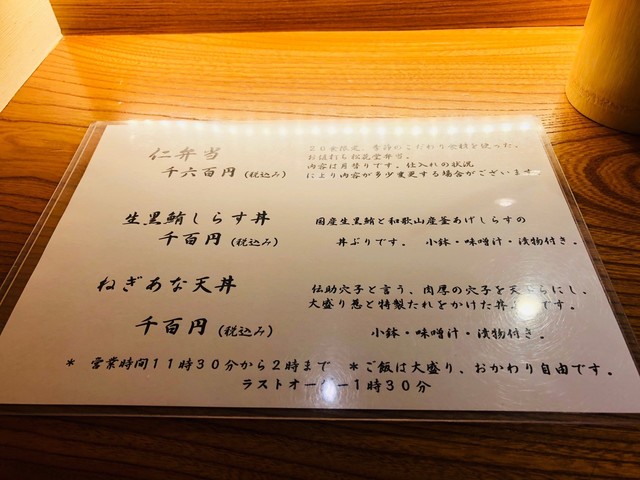 仁弁当
千六百円(税込み)
20食限定 季節のこだわり食材を使った、
お値打ち松花堂弁当。
内容は月替りです。仕入れの状況
により内容が多少変更する場合がございます
生黒鮪しらす丼
千百円(税込み)
国産生黒鮪と和歌山産釜あげしらすの
丼ぶりです。 小鉢・味噌汁・漬物付き。
ねぎあな天丼
千百円(税込み)
伝助穴子と言う、肉厚の穴子を天ぷらにし、
大盛り葱と特製たれをかけた丼ぶりです。
小鉢・味噌汁・漬物付き。
* 営業時間11時30分から2時まで *ご飯は大盛り、おかわり自由です。
ラストオーダー1時30分